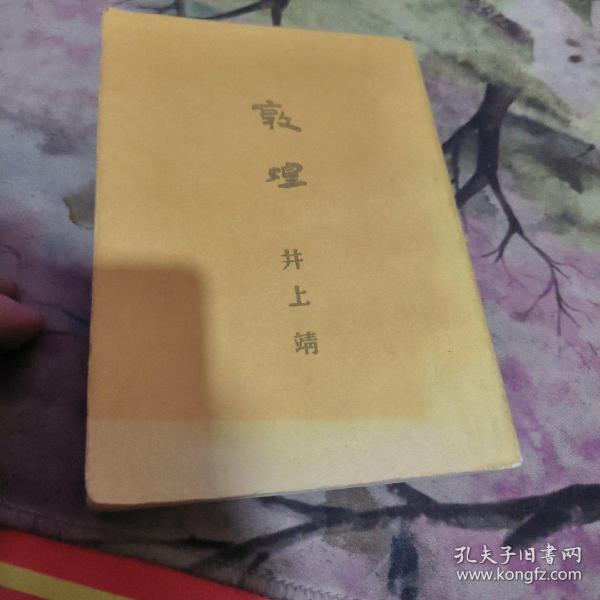 敦煌
井上靖
孔夫子旧書网
www.kongfz.com